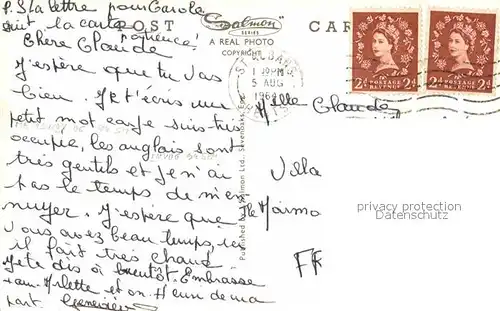 P.S la lettre pour Carole
suit la carte
POST CARD
Salmon
SERIES
A REAL PHOTO
COPYRIGHT
Chère Claude
J'espère que tu vas
bien. Je t'écris un
petit mot car je suis très
occupée, les anglais sont
très gentils et je n'ai
pas le temps de m'en
nuyer. J'espère que
vous avez beau temps, ici
il fait très chaud
je te dis à bientôt. Embrasse
Arlette et on Henri de ma
part. Geneviève
Published by J Salmon Ltd., Sevenoaks, Eng.
5 AUG
2d POSTAGE REVENUE 2d
2d POSTAGE REVENUE 2d
Mlle Claude
Villa
privacy protection
Datenschutz